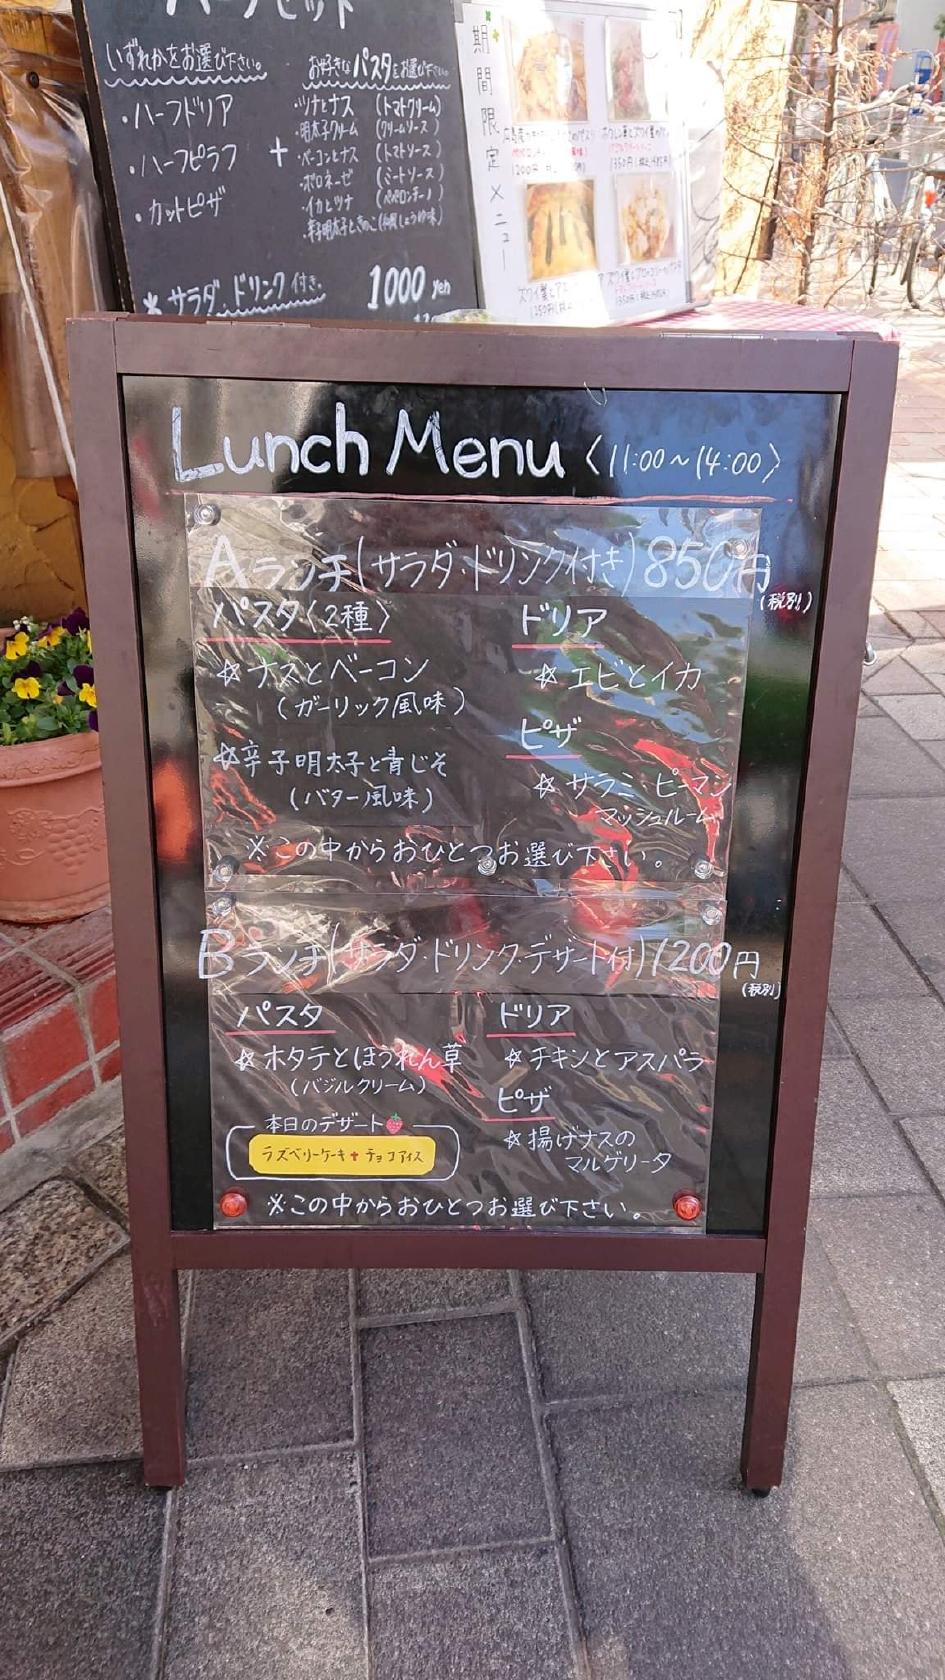 ハーフセット
いずれかをお選び下さい。
・ハーフドリア
・ハーフピラフ
・カットピザ
+
お好きなパスタをお選び下さい。
・ツナとナス (トマトクリーム)
・明太子クリーム (クリームソース)
・ベーコンとナス (トマトソース)
・ボロネーゼ (ミートソース)
・イカとツナ (ペペロンチーノ)
・辛子明太子ときのこ(和風しょうゆ味)
* サラダ、ドリンク付き。 1000 yen
期間限定メニュー
Lunch Menu 〈11:00~14:00〉
Aランチ(サラダ・ドリンク付き)850円
(税別)
パスタ〈2種〉
☆ナスとベーコン
(ガーリック風味)
☆辛子明太子と青じそ
(バター風味)
ドリア
☆エビとイカ
ピザ
☆サラミ ピーマン
マッシュルーム
※この中からおひとつお選び下さい。
Bランチ(サラダ・ドリンク・デザート付)1200円
(税別)
パスタ
☆ホタテとほうれん草
(バジルクリーム)
ドリア
☆チキンとアスパラ
ピザ
☆揚げナスの
マルゲリータ
本日のデザート
ラズベリーケーキ+チョコアイス
※この中からおひとつお選び下さい。